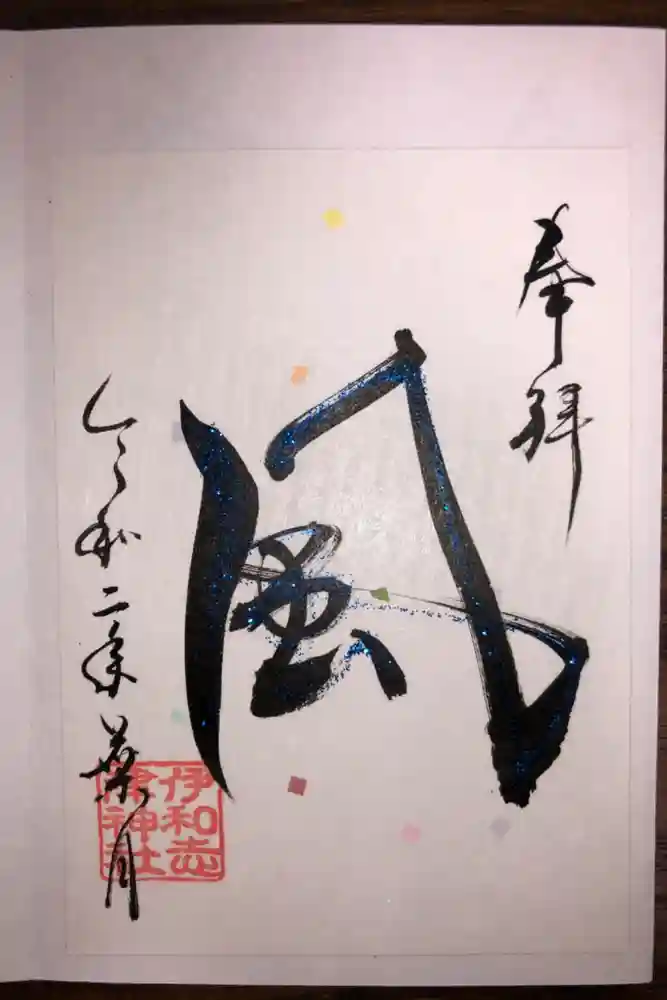 奉拝
風
令和二年葉月
伊和志
津神社